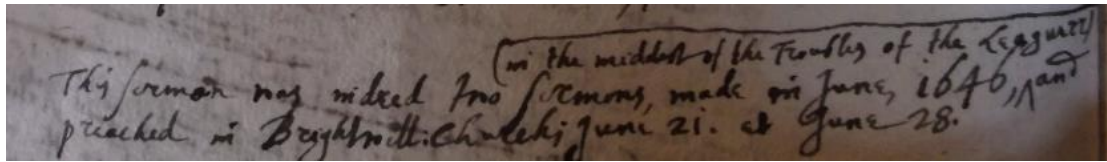 (in the middest of the Troubles of the Leaguers)
This sermon was indeed two sermons, made in June, 1646, ^ and
preached in Brightwell: Church; June 21. et June 28.